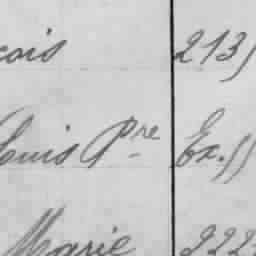 çois 213 //
Louis Pre Ex. //
Marie 222